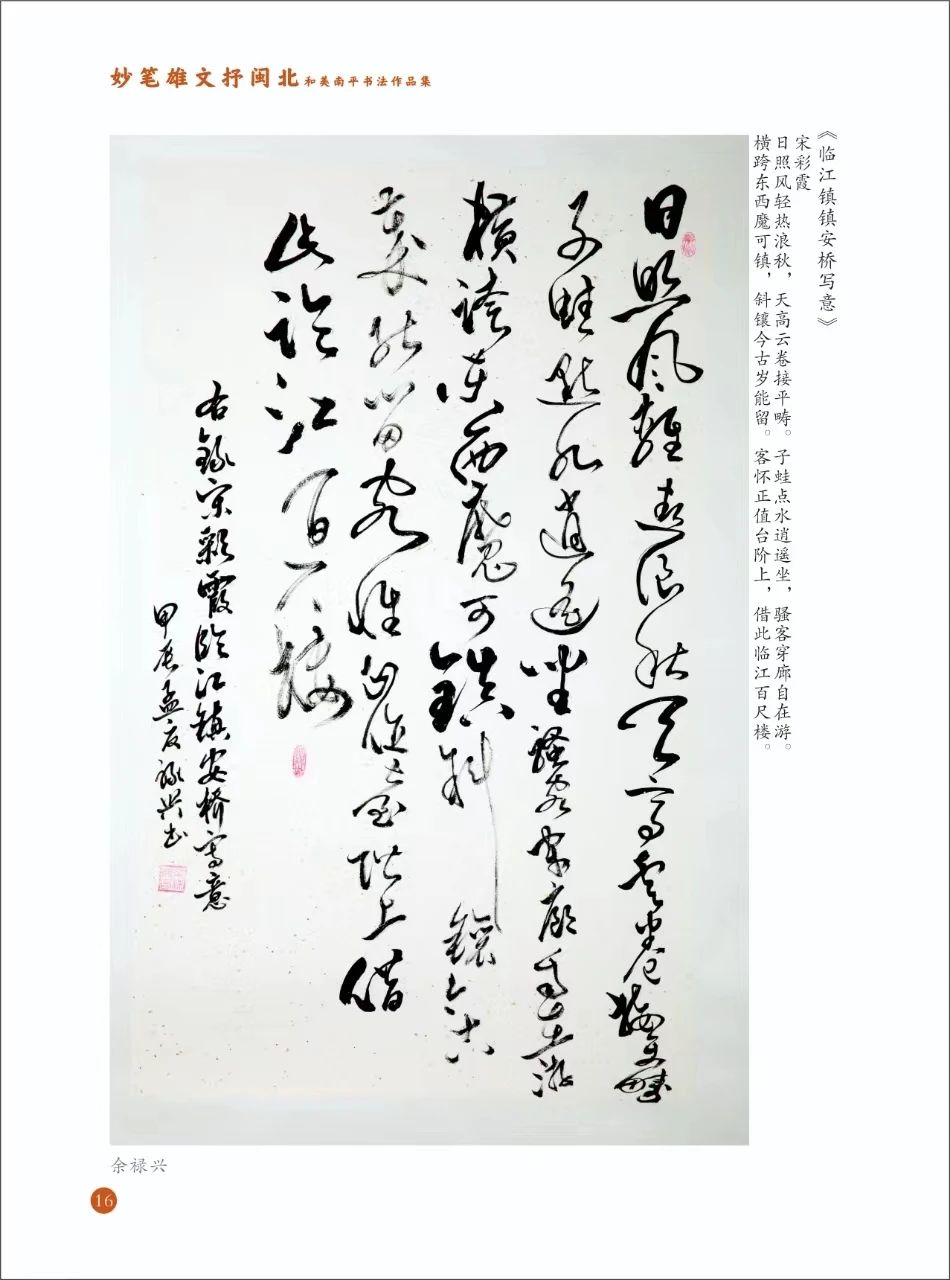 妙笔雄文抒闽北 和美南平书法作品集
《临江镇镇安桥写意》
宋彩霞
日照风轻热浪秋，天高云卷接平畴。子蛙点水逍遥坐，骚客穿廊自在游。
横跨东西魔可镇，斜镶今古岁能留。客怀正值台阶上，借此临江百尺楼。
日照风轻热浪秋天高云卷接平畴
子蛙点水逍遥坐骚客穿廊自在游
横跨东西魔可镇斜镶今古
岁能留客怀正值台阶上借
此临江百尺楼
右录宋彩霞临江镇安桥写意
甲辰孟夏禄兴书
余禄兴
16